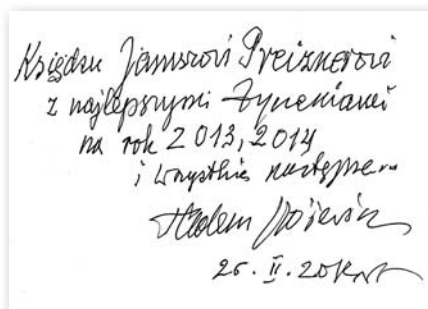 Księdzu Januszowi Preiznerowi
z najlepszymi życzeniami
na rok 2013, 2014
i wszystkie następne
26. II.